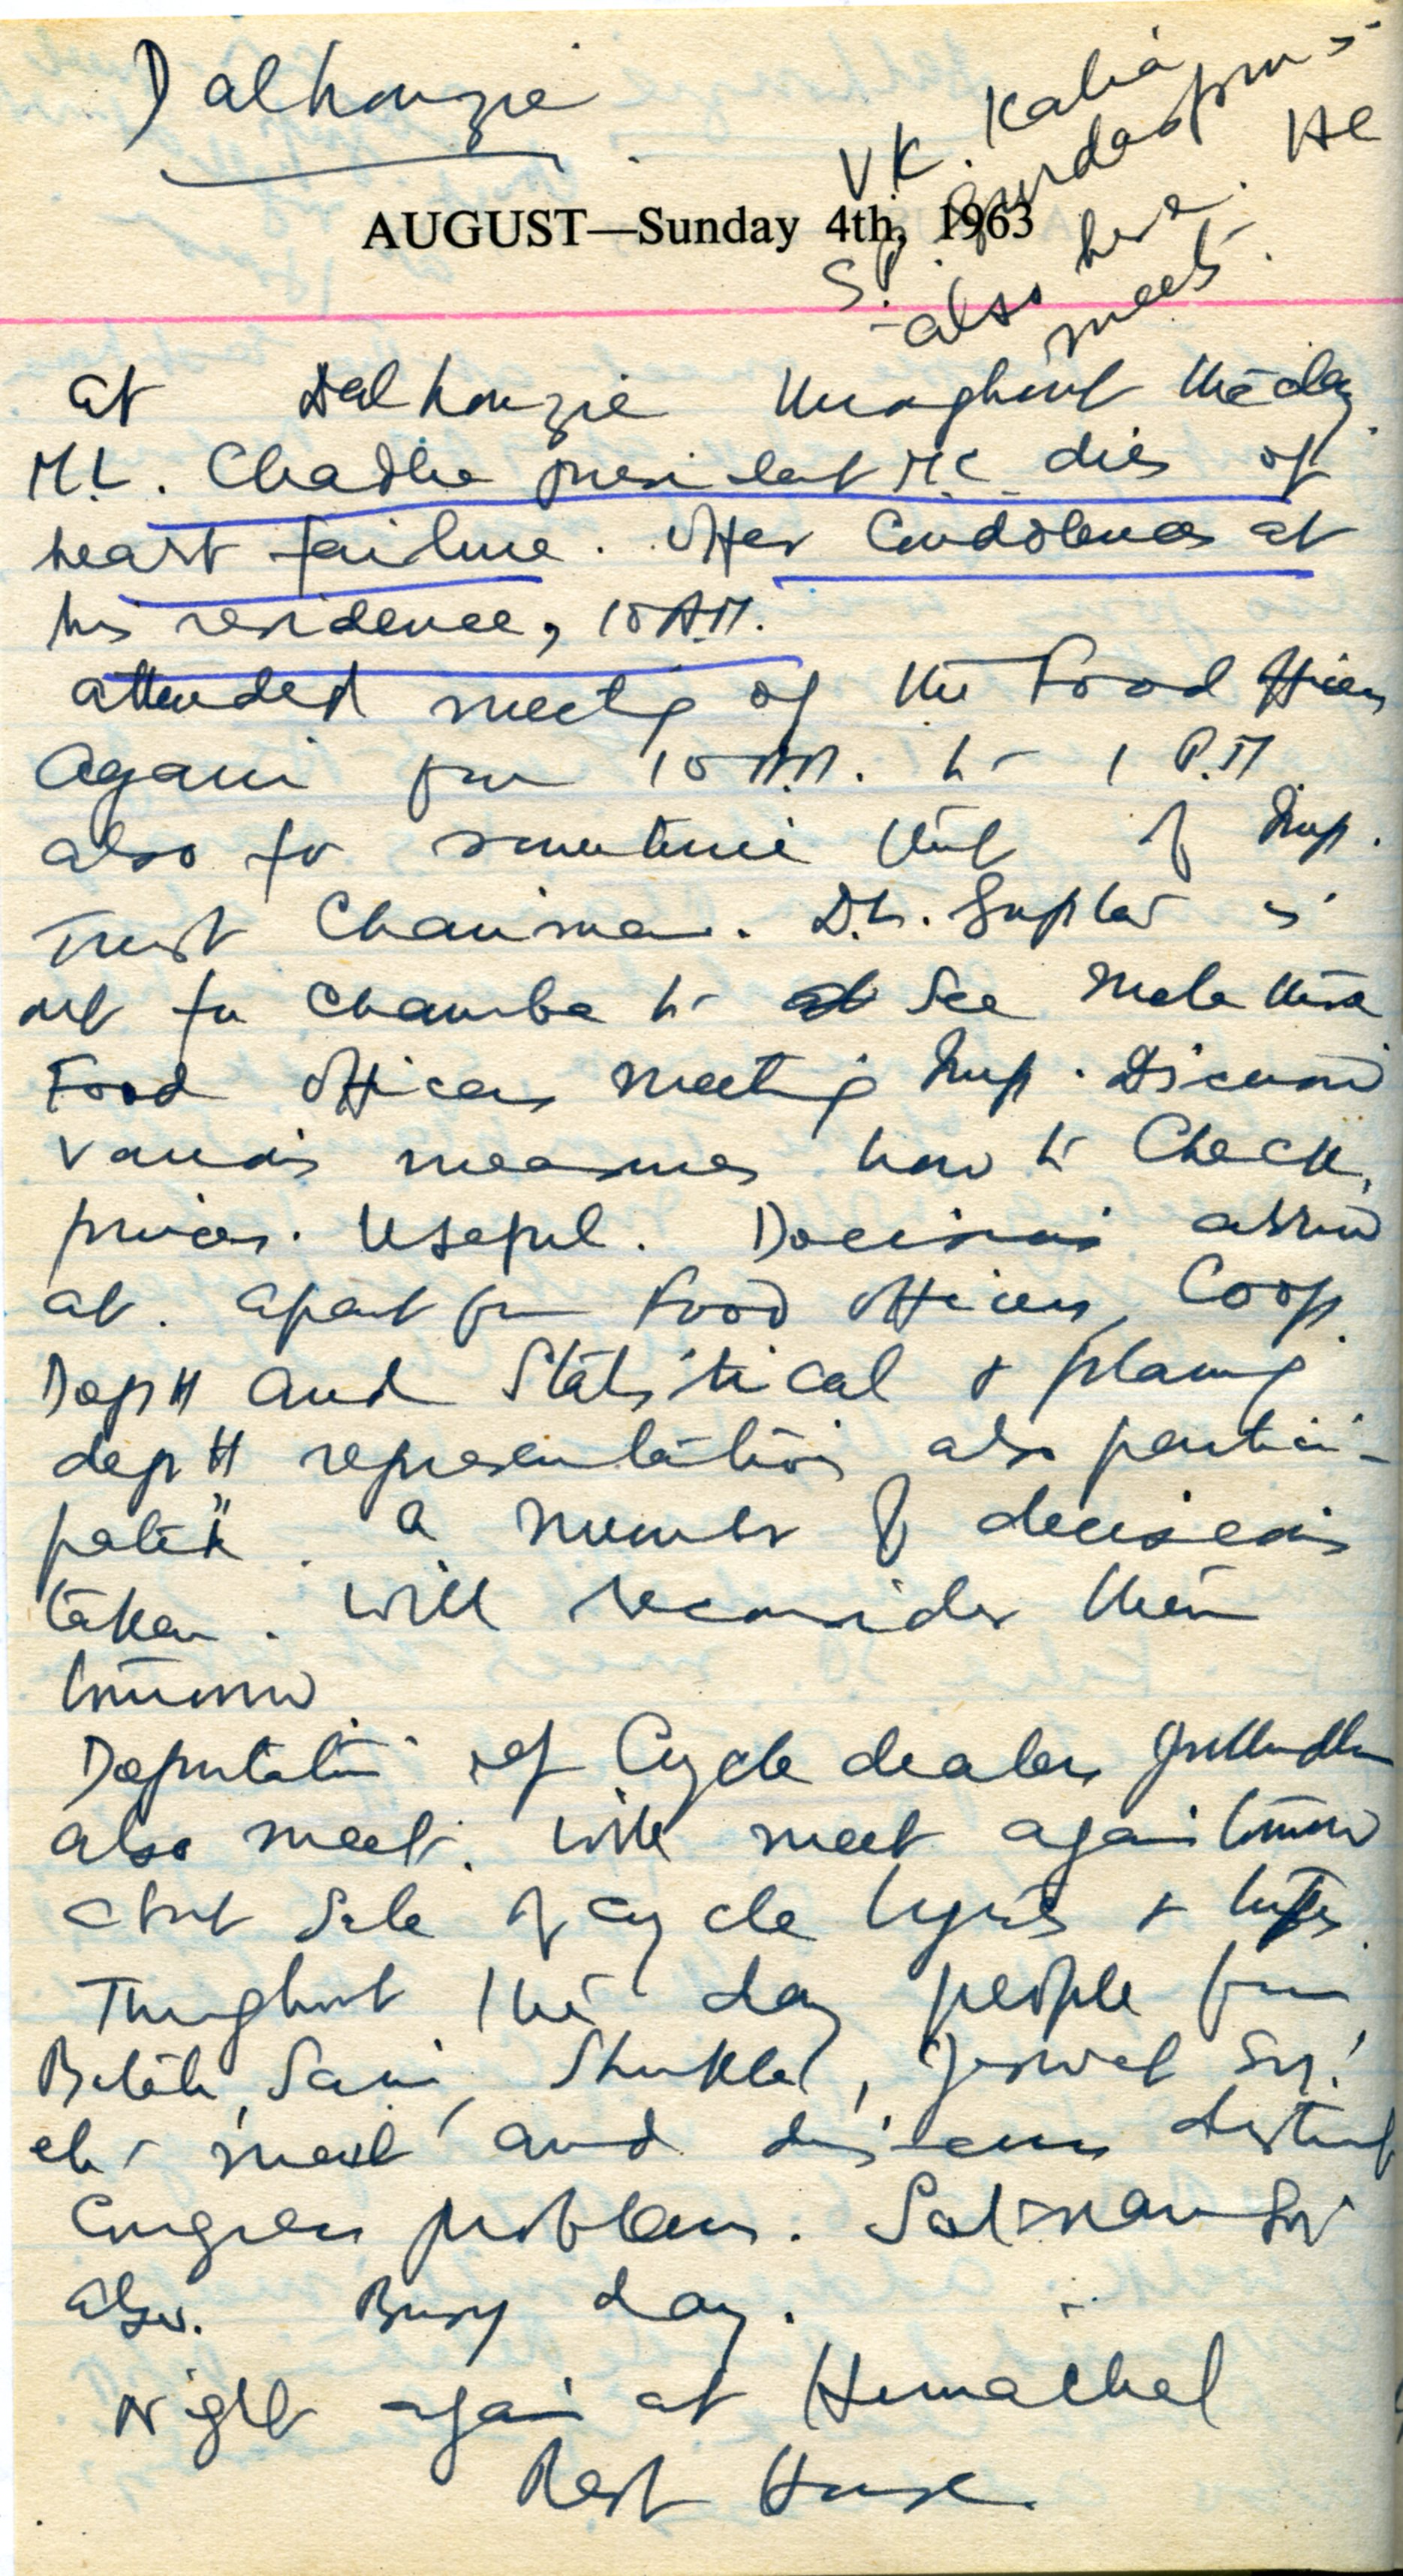 Dalhousie
V.K. Kalia
S.P. Gurdaspur
also here. He
meets.
AUGUST—Sunday 4th, 1963
at Dalhousie throughout the day.
M.L. Chadha president M.C. dies of
heart failure. Offer Condolences at
his residence, 10 A.M.
attended meeting of the Food Officers
Again from 10 A.M. to 1 P.M
also for sometime that of Imp.
Trust Chairman. D.C. is
out for Chamba to see Mela there
Food Officers meeting Imp. Discussed
various measures how to Check
prices. Useful. Decisions arrived
at. apart from Food Officers, Coop.
Deptt and Statistical & planing
deptt representatives also partici-
pated. A number of decisions
taken. Will reconsider them
tomorrow
Deputation of Cycle dealers Jullundur
also meet. Will meet again tomorrow
about Sale of cycle tyres & tubes.
Throughout the day people from
Batala, Saini, Shukla, Jaswat Sn.
etc meet and discuss district
Congress problems. Satnam Sn
also. Busy day.
Night again at Himachal
Rest House.